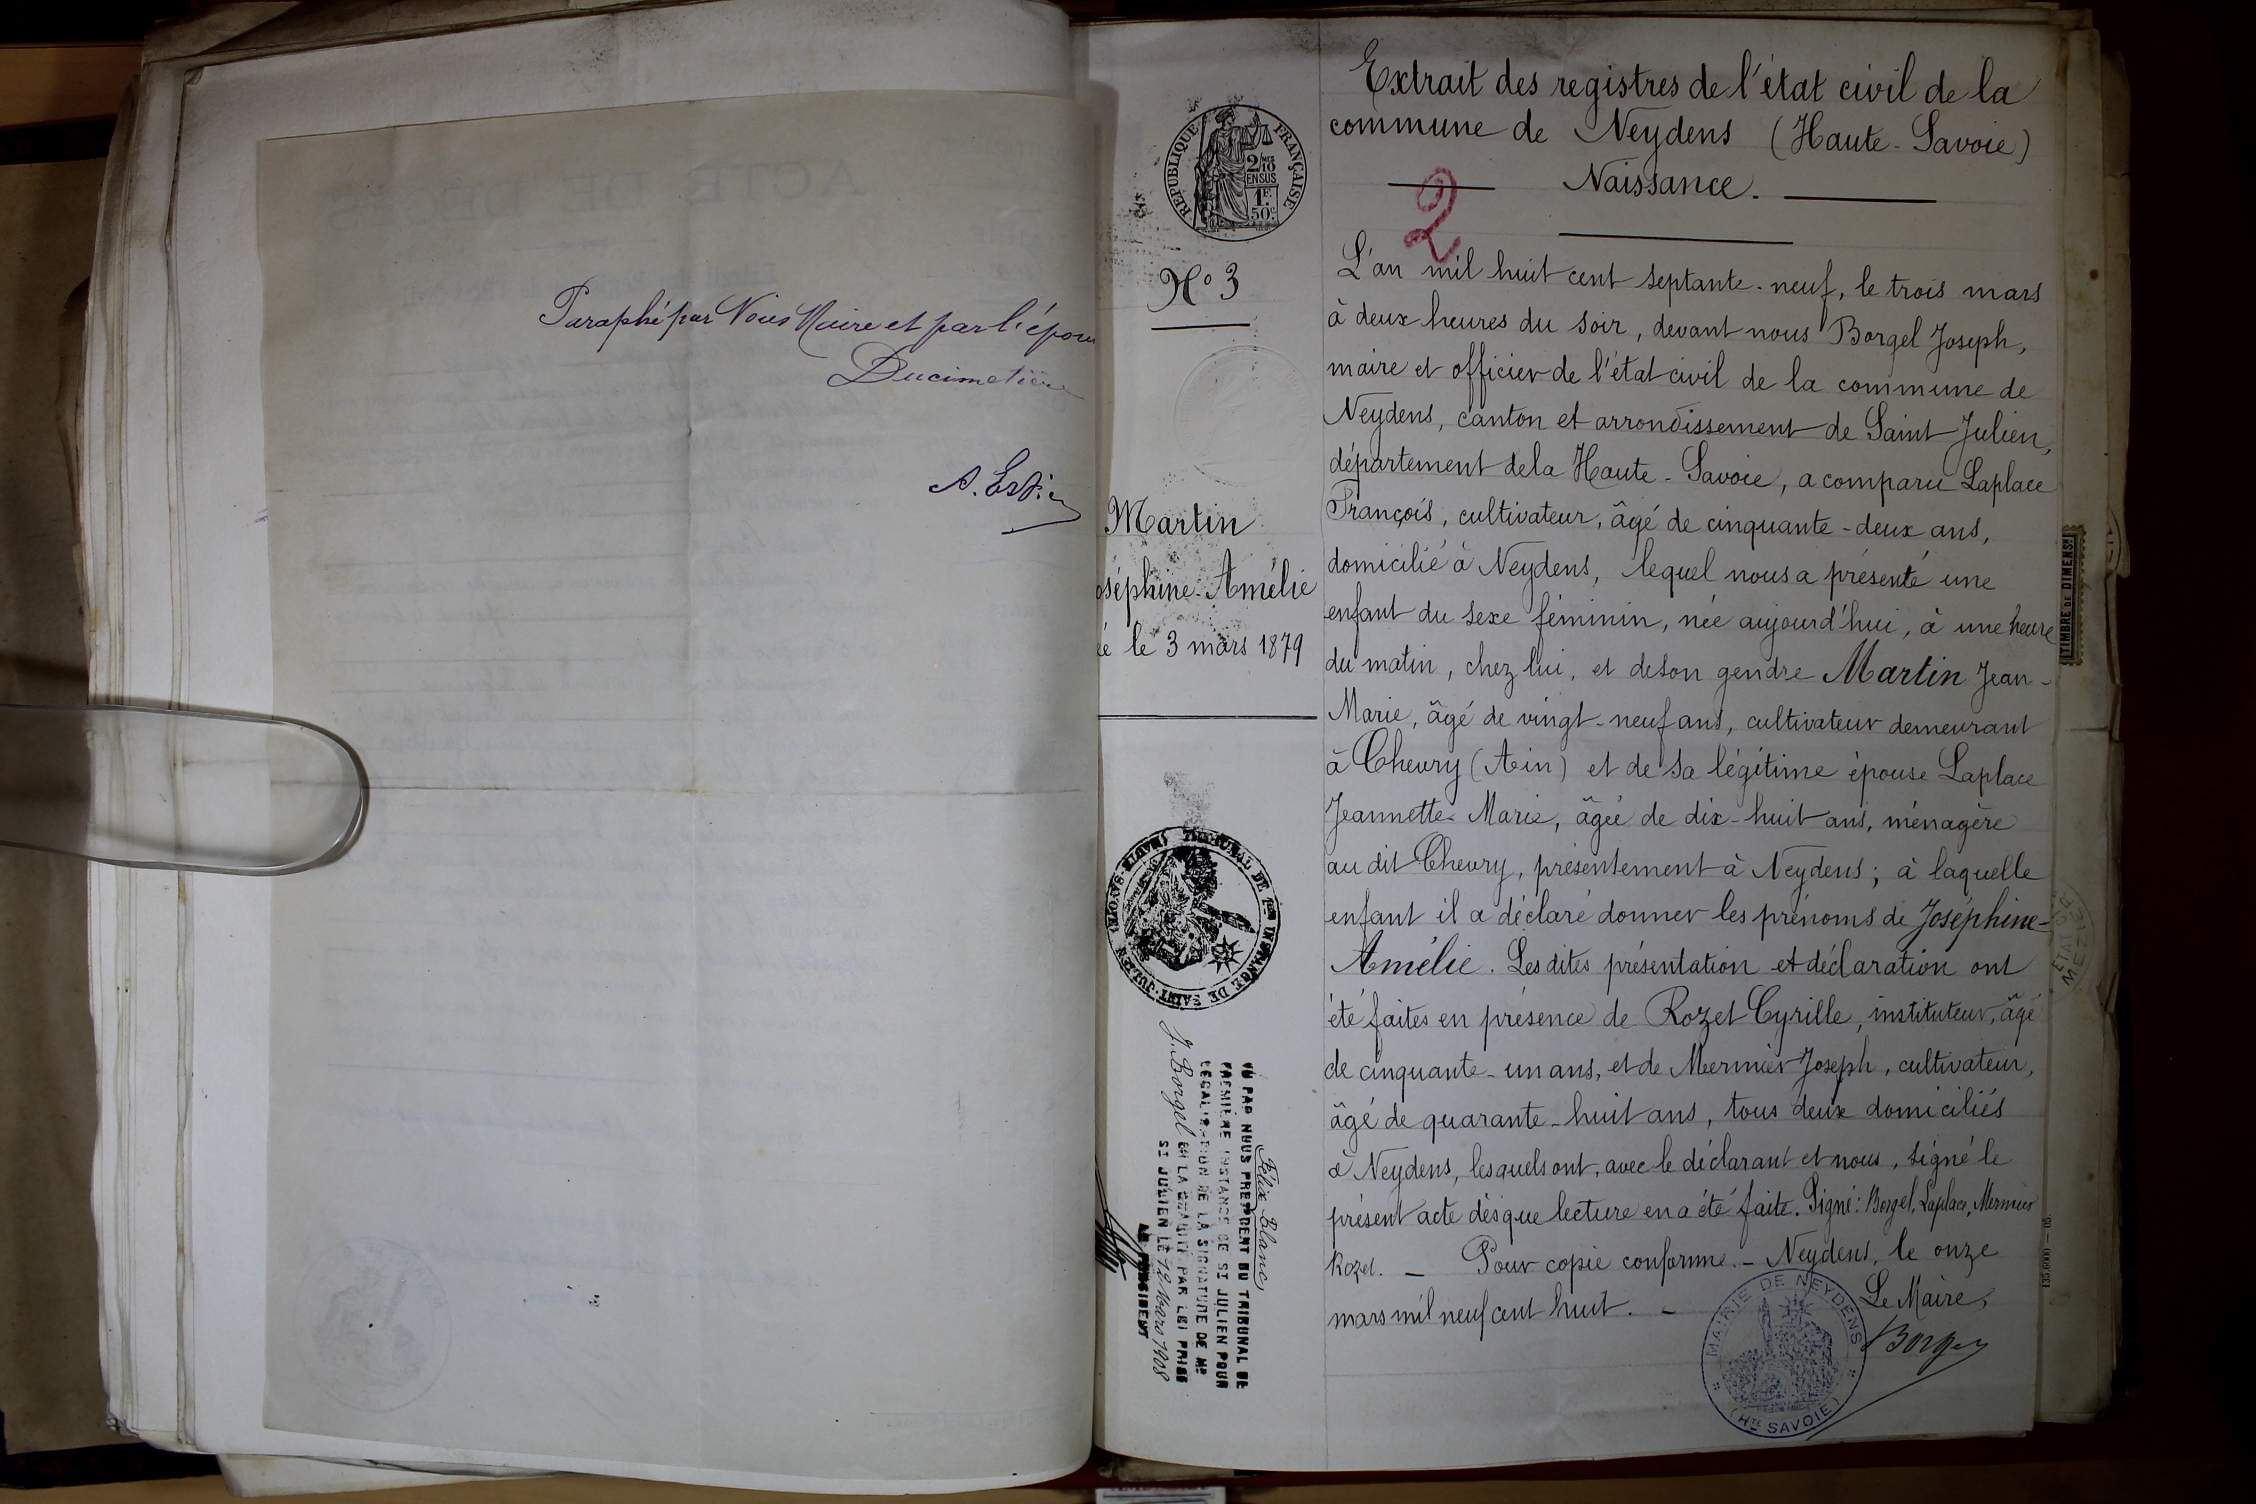 Paraphé par Nous Maire et par l'épou
Ducimetière
RÉPUBLIQUE FRANÇAISE
2/10
EN SUS
1F.
50c.
No 3
Martin
oséphine-Amélie
ée le 3 mars 1879
TRIBUNAL DE 1ère INSTANCE DE SAINT-JULIEN (HAUTE-SAVOIE)
Félix Blanc,
VU PAR NOUS PRÉSIDENT DU TRIBUNAL DE
PREMIÈRE INSTANCE DE ST JULIEN POUR
LÉGALISATION DE LA SIGNATURE DE MR
J. Borgel EN LA QUALITÉ PAR LUI PRISE
ST JULIEN LE 12 Mars 1908
LE PRÉSIDENT
Extrait des registres de l'état civil de la
commune de Neydens (Haute-Savoie)
Naissance.
2
L'an mil huit cent septante-neuf, le trois mars
à deux heures du soir, devant nous Borgel Joseph,
maire et officier de l'état civil de la commune de
Neydens, canton et arrondissement de Saint Julien,
département de la Haute-Savoie, a comparu Laplace
François, cultivateur, âgé de cinquante-deux ans,
domicilié à Neydens, lequel nous a présenté une
enfant du sexe féminin, née aujourd'hui, à une heure
du matin, chez lui, et de son gendre Martin Jean-
Marie, âgé de vingt-neuf ans, cultivateur demeurant
à Chevry (Ain) et de sa légitime épouse Laplace
Jeannette-Marie, âgée de dix-huit ans, ménagère
au dit Chevry, présentement à Neydens; à laquelle
enfant il a déclaré donner les prénoms de Joséphine-
Amélie. Les dites présentation et déclaration ont
été faites en présence de Rozet Cyrille, instituteur, âgé
de cinquante-un ans, et de Mermier Joseph, cultivateur,
âgé de quarante-huit ans, tous deux domiciliés
à Neydens, lesquels ont, avec le déclarant et nous, signé le
présent acte dès que lecture en a été faite. Signé: Borgel, Laplace, Mermier
Rozet. — Pour copie conforme. — Neydens, le onze
mars mil neuf cent huit. —
Le Maire,
Borgel
MAIRIE DE NEYDENS
(HTE SAVOIE)
TIMBRE DE DIMENSN